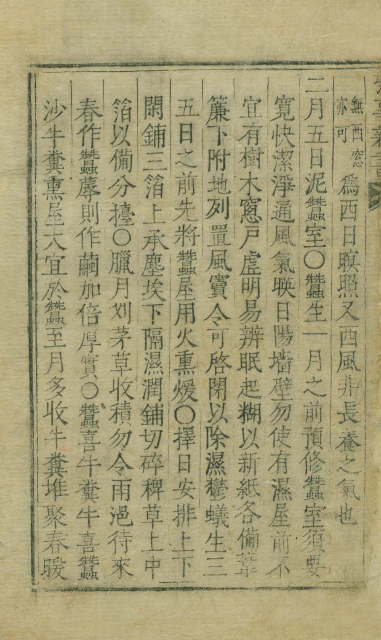 無西窓
亦可
爲西日暝照又西風非長養之氣也
二月五日泥蠶室〇蠶生一月之前預修蠶室須要
寬快潔淨通風氣映日陽墻壁勿使有濕屋前不
宜有樹木窓戶虛明易辨眠起糊以新紙各備
簾下附地列置風竇令可啓閉以除濕鬱蟻生三
五日之前先將蠶屋用火熏煖〇擇日安排上下
閑鋪三箔上承塵埃下隔濕潤鋪切碎稗草上中
箔以備分擡〇臘月刈茅草收積勿令雨浥待來
春作蠶蓐則作繭加倍厚實〇蠶喜牛糞牛喜蠶
沙牛糞熏屋大宜於蠶至月多收牛糞堆聚春暖